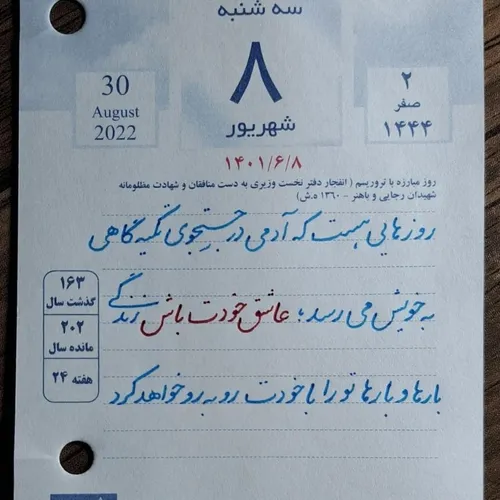 سه شنبه
۸
شهریور
30
August
2022
۲
صفر
۱۴۴۴
۱۴۰۱/۶/۸
روز مبارزه با تروریسم ( انفجار دفتر نخست وزیری به دست منافقان و شهادت مظلومانه
شهیدان رجایی و باهنر - ۱۳۶۰ ه.ش)
روزهایی هست که آدمی در جستجوی تکیه گاهی
به خویش می رسد؛ عاشق خودت باش زندگی
بارها و بارها تو را با خودت رو به رو خواهد کرد
۱۶۳
گذشت سال
۲۰۲
مانده سال
هفته ۲۴